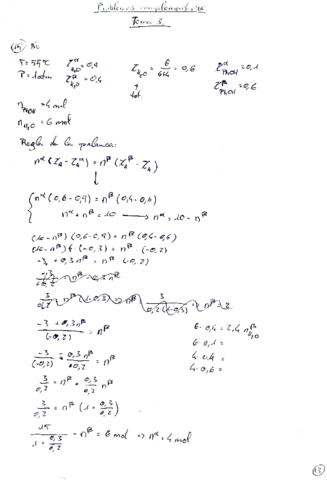 Problemas complementarios
Tema 3.
T=55ºC
P=1atm
χ^α_{H₂O}=0,9
χ^β_{H₂O}=0,4
χ_{H₂O} = 6/(6+4) = 0,6
↑
tot.
χ^α_{PhOH}=0,1
χ^β_{PhOH}=0,6
n_{PhOH}=4 mol
n_{H₂O}=6 mol
Regla de la palanca:
n^α(χ_A-χ_A^α)=n^β(χ_A^β-χ_A)
↓
n^α(0,6-0,9)=n^β(0,4-0,6)
n^α+n^β=10 → n^α=10-n^β
(10-n^β)(0,6-0,9)=n^β(0,4-0,6)
(10-n^β)·(-0,3)=n^β·(-0,2)
-3+0,3n^β=n^β(-0,2)
(-3+0,3n^β)/(-0,2)=n^β
3/0,2=n^β+(0,3/0,2)n^β
3/0,2=n^β(1+0,3/0,2)
15/(1+0,3/0,2)=n^β=6 mol ⇒ n^α=4 mol
6·0,4=2,4 n^β_{H₂O}
6·0,1=
4·0,4=
4·0,6=